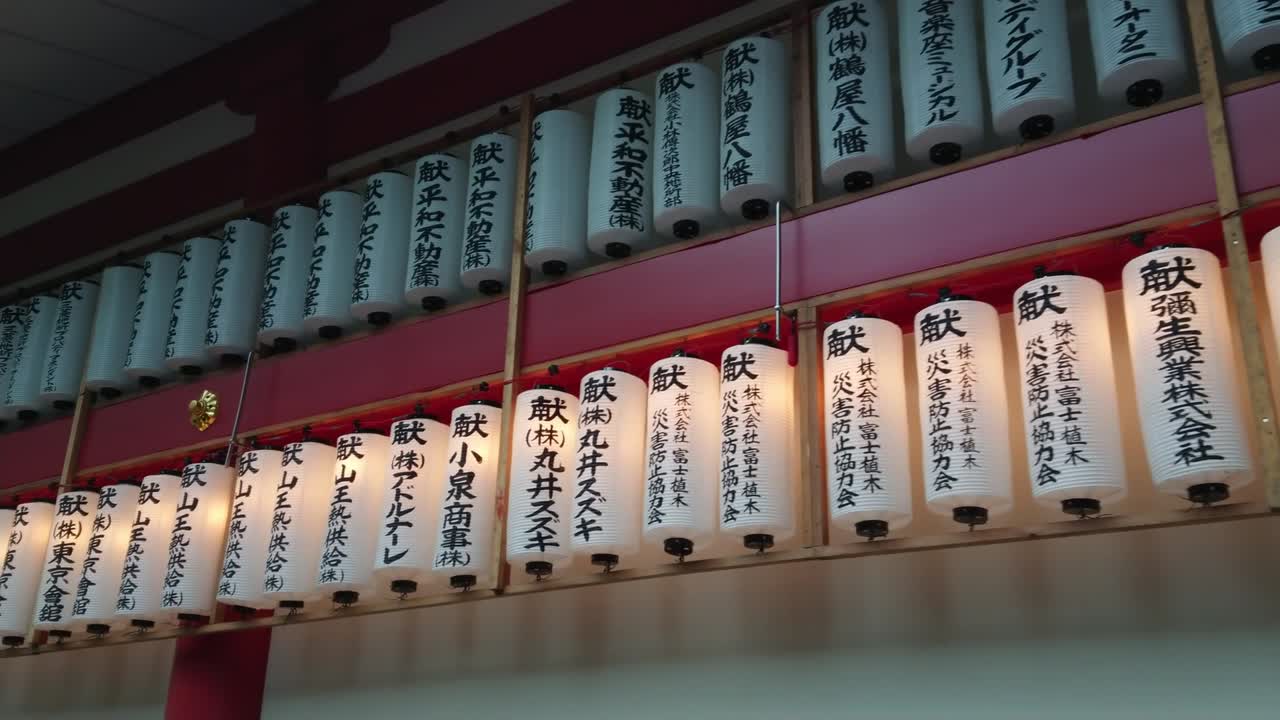 献平和不動産(株)
献平和不動産(株)
献平和不動産(株)
献平和不動産(株)
献平和不動産(株)
献平和不動産(株)
献平和不動産(株)
献平和不動産(株)
献(株)鶴屋八幡
献(株)鶴屋八幡
音楽座ミュージカル
ディグループ
ーオータニ
献(株)東京會舘
献(株)東京會舘
献山王熱供給(株)
献山王熱供給(株)
献山王熱供給(株)
献山王熱供給(株)
献山王熱供給(株)
献(株)アトルナーレ
献小泉商事(株)
献(株)丸井スズキ
献(株)丸井スズキ
献 株式会社 富士植木
災害防止協力会
献 株式会社 富士植木
災害防止協力会
献 株式会社 富士植木
災害防止協力会
献 株式会社 富士植木
災害防止協力会
献 株式会社 富士植木
災害防止協力会
献彌生興業株式会社